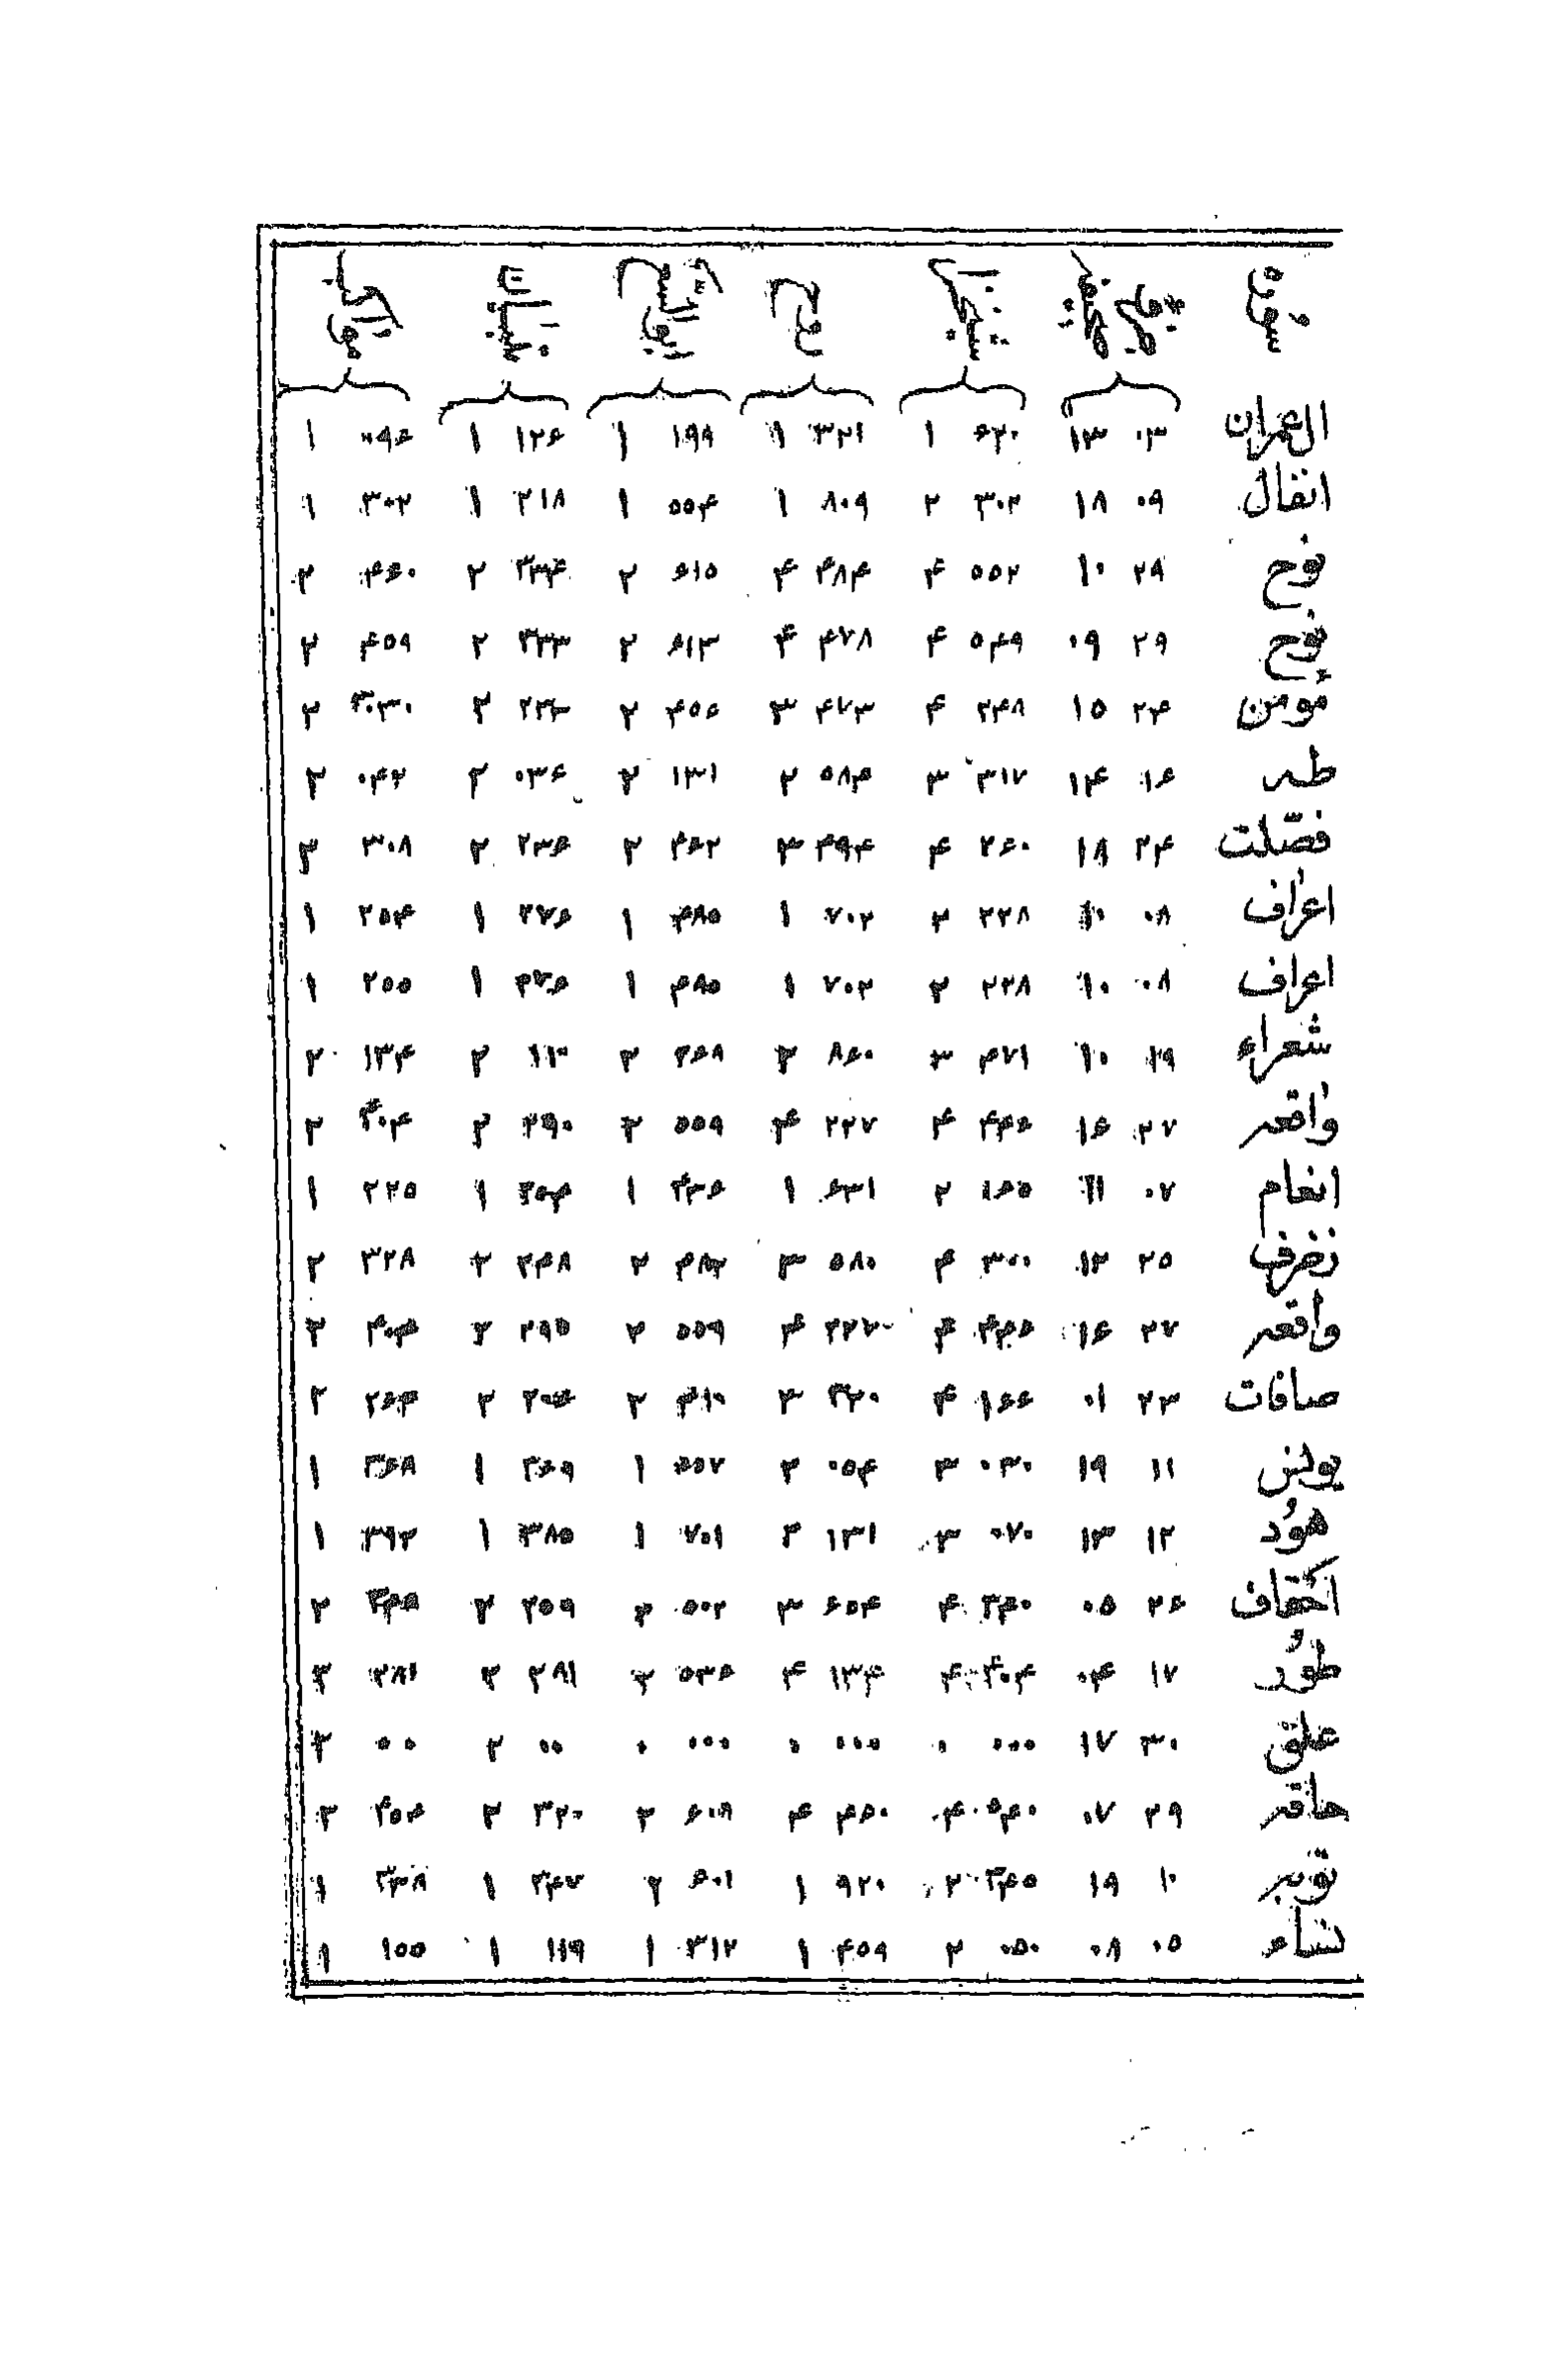 ال عمران ۰۳ ۱۳ ۶۲۰ ۱ ۳۲۱ ۱ ۱۹۹ ۱ ۱۲۶ ۱ ۰۹۶ ۱
انفال ۰۹ ۱۸ ۳۰۲ ۲ ۸۰۹ ۱ ۵۵۴ ۱ ۲۱۸ ۱ ۳۰۲ ۱
نوح ۲۹ ۱۰ ۵۵۲ ۴ ۴۸۴ ۴ ۶۱۵ ۲ ۳۳۴ ۲ ۴۶۰ ۲
نوح ۲۹ ۰۹ ۵۴۹ ۴ ۴۷۸ ۴ ۶۱۳ ۲ ۳۳۳ ۲ ۴۵۹ ۲
مؤمن ۲۴ ۱۵ ۲۴۸ ۴ ۴۷۳ ۳ ۴۵۶ ۲ ۲۳۳ ۲ ۳۰۳۰ ۲
طه ۱۶ ۱۴ ۳۱۷ ۳ ۵۸۴ ۲ ۱۳۱ ۲ ۰۳۶ ۲ ۰۴۲ ۲
فصّلت ۲۴ ۱۸ ۲۶۰ ۴ ۴۹۴ ۳ ۴۶۲ ۲ ۲۳۶ ۲ ۳۰۸ ۲
اعراف ۰۸ ۱۰ ۲۲۸ ۲ ۷۰۲ ۱ ۴۸۵ ۱ ۲۷۶ ۱ ۲۵۴ ۱
اعراف ۰۸ ۱۰ ۲۲۸ ۲ ۷۰۲ ۱ ۴۸۵ ۱ ۲۷۶ ۱ ۲۵۵ ۱
شعراء ۱۹ ۱۰ ۴۷۱ ۳ ۸۶۰ ۲ ۲۶۸ ۲ ۱۱۳ ۲ ۱۳۴ ۲
واقعه ۲۷ ۱۶ ۴۴۶ ۴ ۲۲۷ ۴ ۵۵۹ ۲ ۲۹۰ ۲ ۴۰۴ ۲
انعام ۰۷ ۱۱ ۱۶۵ ۲ ۶۳۱ ۱ ۴۳۶ ۱ ۲۵۴ ۱ ۲۲۵ ۱
زخرف ۲۵ ۱۲ ۳۰۰ ۴ ۵۸۰ ۳ ۴۸۲ ۲ ۲۴۸ ۲ ۳۲۸ ۲
واقعه ۲۷ ۱۶ ۴۴۶ ۴ ۲۲۷ ۴ ۵۵۹ ۲ ۲۹۵ ۲ ۴۰۴ ۲
صافات ۲۳ ۰۱ ۱۶۶ ۴ ۳۲۰ ۳ ۴۱۰ ۲ ۲۰۶ ۲ ۲۶۴ ۲
یونس ۱۱ ۱۹ ۰۳۰ ۳ ۰۵۴ ۲ ۶۵۷ ۱ ۳۶۹ ۱ ۳۶۸ ۱
هوُد ۱۲ ۱۳ ۰۷۰ ۳ ۱۳۱ ۲ ۷۰۱ ۱ ۳۸۵ ۱ ۳۹۲ ۱
احقاف ۲۶ ۰۵ ۳۴۰ ۴ ۶۵۴ ۳ ۵۰۲ ۲ ۲۵۹ ۲ ۲
طوُر ۱۷ ۰۴ ۴۰۴ ۴ ۱۳۴ ۴ ۵۳۶ ۲ ۲۸۱ ۲ ۲۸۱ ۲
علق ۳۰ ۱۷ ۰۰۰ ۰ ۰۰۰ ۰ ۰۰۰ ۰ ۰۰ ۲ ۰۰ ۲
حاقه ۲۹ ۰۷ ۵۴۰ ۴ ۴۵۰ ۴ ۶۰۹ ۲ ۳۲۰ ۲ ۴۵۴ ۲
توبه ۱۰ ۱۹ ۳۴۵ ۲ ۹۲۰ ۱ ۶۰۱ ۲ ۳۴۷ ۱ ۳۳۸ ۱
نساء ۰۵ ۰۸ ۰۵۰ ۲ ۴۵۹ ۱ ۳۱۲ ۱ ۱۱۹ ۱ ۱۵۵ ۱